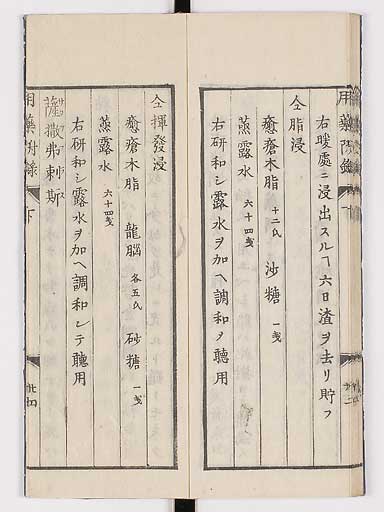 用藥附錄
右暖處ニ浸出スルヿ六日渣ヲ去リ貯フ
仝脂浸
癒瘡木脂 十二氏 沙糖 一戔
蒸露水 六十四戔
右研和シ露水ヲ加ヘ調和メ聴用
仝揮發浸
癒瘡木脂 龍腦 各五氏 砂糖 一戔
蒸露水 六十四戔
右研和シ露水ヲ加ヘ調和シテ聴用
薩撒弗剌斯
用藥附錄 下 廿四